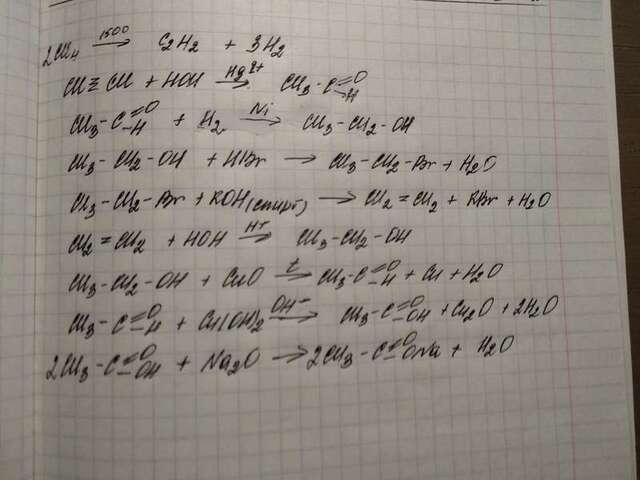 2CH₄ —1500→ C₂H₂ + 3H₂
CH≡CH + HOH —Hg²⁺→ CH₃-C(=O)-H
CH₃-C(=O)-H + H₂ —Ni→ CH₃-CH₂-OH
CH₃-CH₂-OH + HBr → CH₃-CH₂-Br + H₂O
CH₃-CH₂-Br + KOH(спирт) → CH₂=CH₂ + KBr + H₂O
CH₂=CH₂ + HOH —H⁺→ CH₃-CH₂-OH
CH₃-CH₂-OH + CuO —t→ CH₃-C(=O)-H + Cu + H₂O
CH₃-C(=O)-H + Cu(OH)₂ —OH⁻→ CH₃-C(=O)-OH + Cu₂O + 2H₂O
2CH₃-C(=O)-OH + Na₂O → 2CH₃-C(=O)-ONa + H₂O